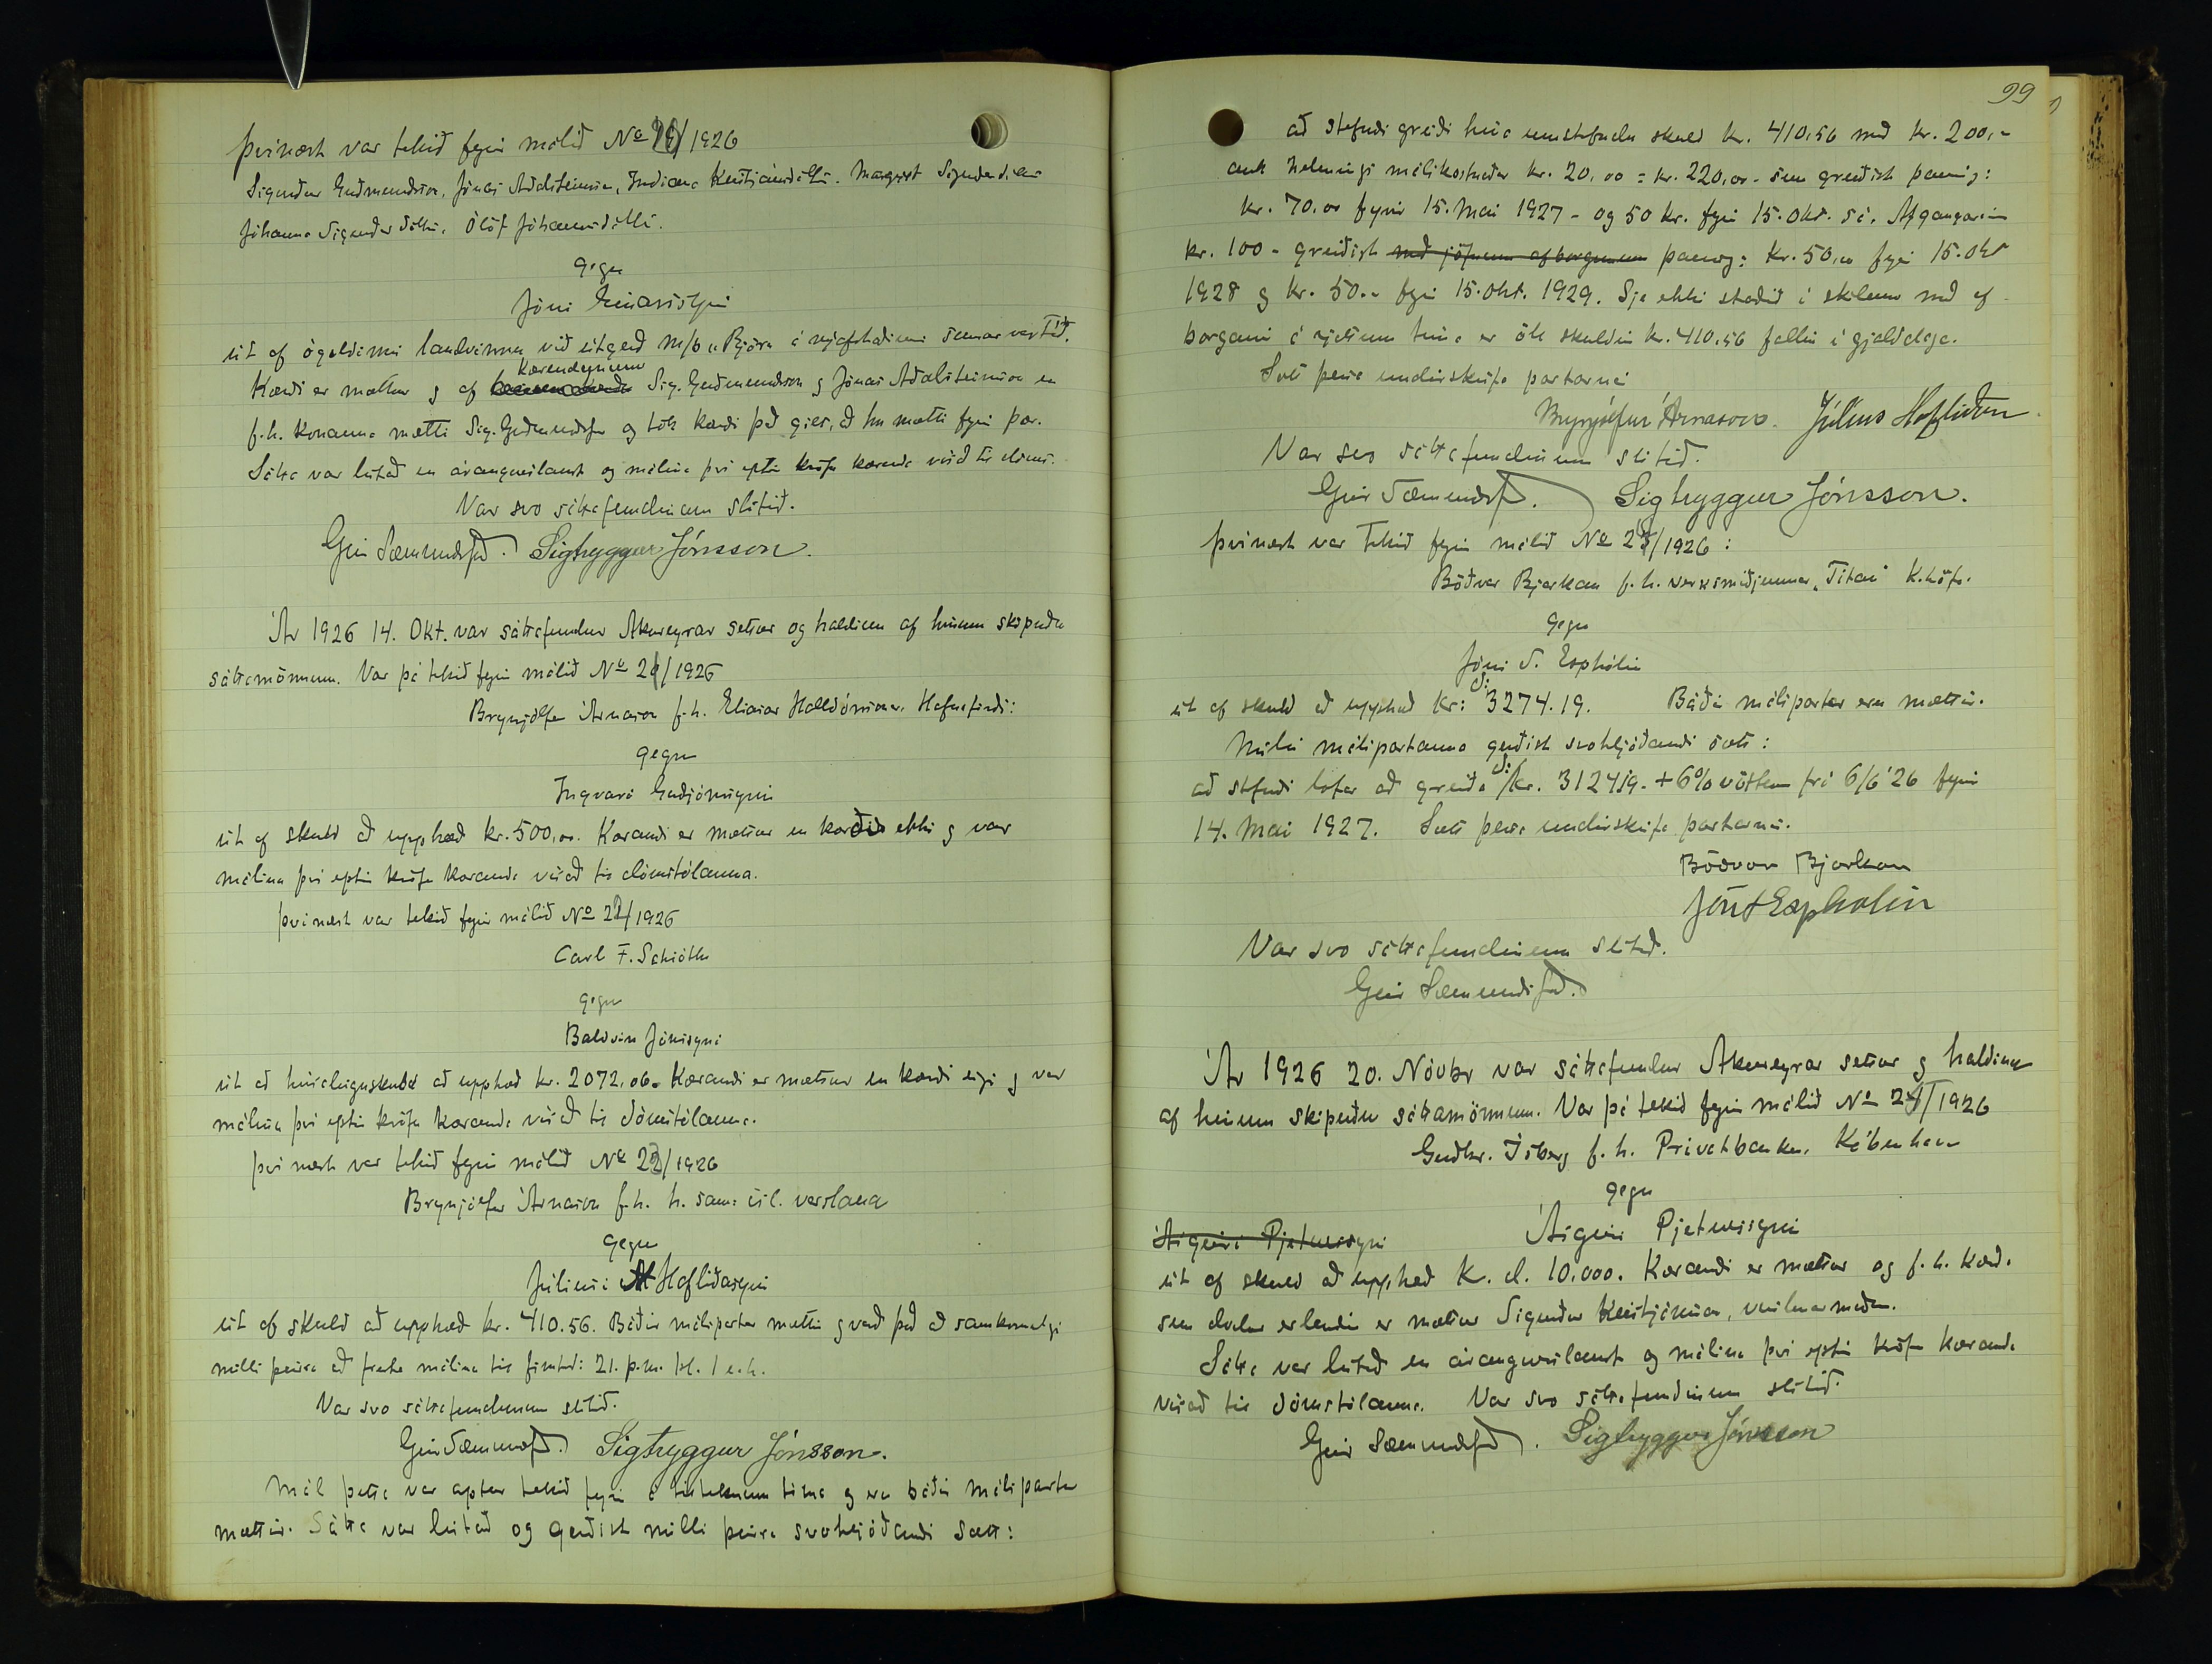 Þvínæst var tekið fyrir málið No 19/1926
Sigurður Guðmundsson, Jónas Aðalsteinsson, Indíana Kristjánsdóttir, Margret Sigurðardóttir
Jóhanna Sigurðardóttir, Ólöf Jóhannsdóttir.
gegn
Jóni Einarssyni
út af ógoldinni landvinnu við útgerð m/b "Björn" á nýafstaðinni sumarvertíð.
Kærði er mættur og af kærendunum Sig. Guðmundsson og Jónas Aðalsteinsson en
f.h. kvennanna mætti Sig. Guðmundsson og tók kærði það gilt, að hann mætti fyrir þær.
Sátta var leitað en árangurslaust og málinu því eptir kröfu kærenda vísað til dóms.
Var svo sáttafundinum slitið.
Geir Sæmundsson. Sigtryggur Jónsson.
Ár 1926 14. Okt. var sáttafundur Akureyrar settur og haldinn af hinum skipuðu
sáttamönnum. Var þá tekið fyrir málið No 20/1926
Brynjólfur Árnason f.h. Elíasar Halldórssonar, Hafnafirði:
gegn
Ingvari Guðjónssyni
út af skuld að upphæð kr. 500,00. Kærandi er mættur en kærði ekki og var
málinu því eptir kröfu kæranda vísað til dómstólanna.
Þvínæst var tekið fyrir málið No 21/1926
Carl F. Schiöth
gegn
Baldvin Jónssyni
út af húsaleiguskuld að upphæð kr. 2072,06. Kærandi er mættur en kærði eigi og var
málinu því eptir kröfu kæranda vísað til dómstólanna.
Því næst var tekið fyrir málið No 22/1926
Brynjólfur Árnason f.h. h. sam. ísl. verslana
gegn
Júlíusi Hafliðasyni
út af skuld að upphæð kr. 410.56. Báðir málspartar mættir og varð það að samkomulagi
milli þeirra að fresta málinu til fimtud: 21. þ.m. kl. 1 e.h.
Var svo sáttafundinum slitið.
Geir Sæmundsson. Sigtryggur Jónsson.
Mál þetta var aptur tekið fyrir á tilteknum tíma og eru báðir málspartar
mættir. Sátta var leitað og gerðist milli þeirra svohljóðandi sætt:
99
að stefndi greiði hina umstefndu skuld kr. 410,56 með kr. 200,-
auk helmings málskostnaðar kr. 20,00 = kr. 220,00 - sem greiðist þannig:
kr. 70.00 fyrir 15. Mai 1927 - og 50 kr. fyrir 15. Okt. s.á. Afgangurinn
kr. 100 - greiðist með jöfnum afborgunum þannig: kr. 50,00 fyrir 15. Okt
1928 og kr. 50.- fyrir 15. Okt. 1929. Sje ekki staðið í skilum með af-
borganir á rjettum tíma er öll skuldin kr. 410.56 fallin í gjalddaga.
Sætt þessa undirskrifa partarnir
Brynjólfur Árnason. Júlíus Hafliðason.
Var svo sáttafundinum slitið.
Geir Sæmundsson. Sigtryggur Jónsson.
Þvínæst var tekið fyrir málið No 23/1926:
Böðvar Bjarkan f.h. verksmiðjunnar "Titan" K.höfn.
gegn
Jóni S. Espholin
út af skuld að upphæð kr: d: 3274.19. Báðir málspartar eru mættir.
Milli málspartanna gerðist svohljóðandi sætt:
að stefndi lofar að greiða d: kr. 3124,19. + 6% vöxtum frá 6/6 '26 fyrir
14. Mai 1927. Sætt þessa undirskrifa partarnir.
Böðvar Bjarkan
Jón S Espholin
Var svo sáttafundinum slitið.
Geir Sæmundsson.
Ár 1926 20. Nóvbr var sáttafundur Akureyrar settur og haldinn
af hinum skipuðu sáttamönnum. Var þá tekið fyrir málið No 24/1926
Guðbr. Ísberg f.h. Privatbanken, Köbenhavn
gegn
Ásgeiri Pjeturssyni Ásgeiri Pjeturssyni
út af skuld að upphæð K. d. 10.000. Kærandi er mættur og f.h. kærða
sem dvelur erlendis er mættur Sigurður Kristjánsson, verslunarmaður.
Sátta var leitað en árangurslaust og málinu því eptir kröfu kæranda
vísað til dómstólanna. Var svo sáttafundinum slitið.
Geir Sæmundsson. Sigtryggur Jónsson